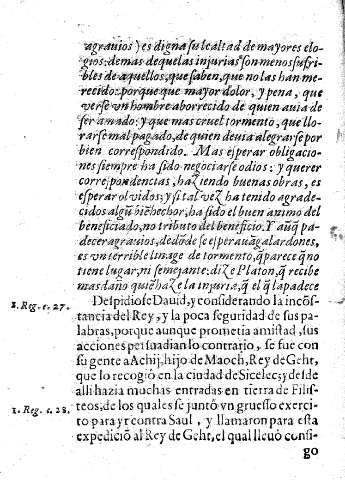 agrauios) es digna su lealtad de mayores elo-
gios: demas de que las injurias son menos sufri-
bles de aquellos, que saben, que no las han me-
recido: porque que mayor dolor, y pena, que
verse vn hombre aborrecido de quien auia de
ser amado: y que mas cruel tormento, que llo-
rarse mal pagado, de quien deuia alegrarse por
bien correspondido. Mas esperar obligacio-
nes siempre ha sido negociarse odios: y querer
correspondencias, haziendo buenas obras, es
esperar oluidos; y si tal vez ha tenido agrade-
cidos algũ biẽhechor, ha sido el buen animo del
beneficiado, no tributo del beneficio. Y aũq̃ pa-
decer agrauios, de dõde se esperauã galardones,
es vn terrible linage de tormento, q̃ parece q̃ no
tiene lugar, ni semejante: dize Platon, q̃ recibe
mas daño quiẽ haze la injuria, q̃ el q̃ la padece
1. Reg. c. 27. Despidiose Dauid, y considerando la incõs-
tancia del Rey, y la poca seguridad de sus pa-
labras, porque aunque prometia amistad, sus
acciones persuadian lo contrario, se fue con
su gente a Achij, hijo de Maoch, Rey de Geht,
que lo recogiò en la ciudad de Sicelec; y desde
alli hazia muchas entradas en tierra de Filis-
1. Reg. c. 28. teos, de los quales se juntò vn gruesso exerci-
to para yr contra Saul, y llamaron para esta
expediciõ al Rey de Geht, el qual lleuò consi-
go